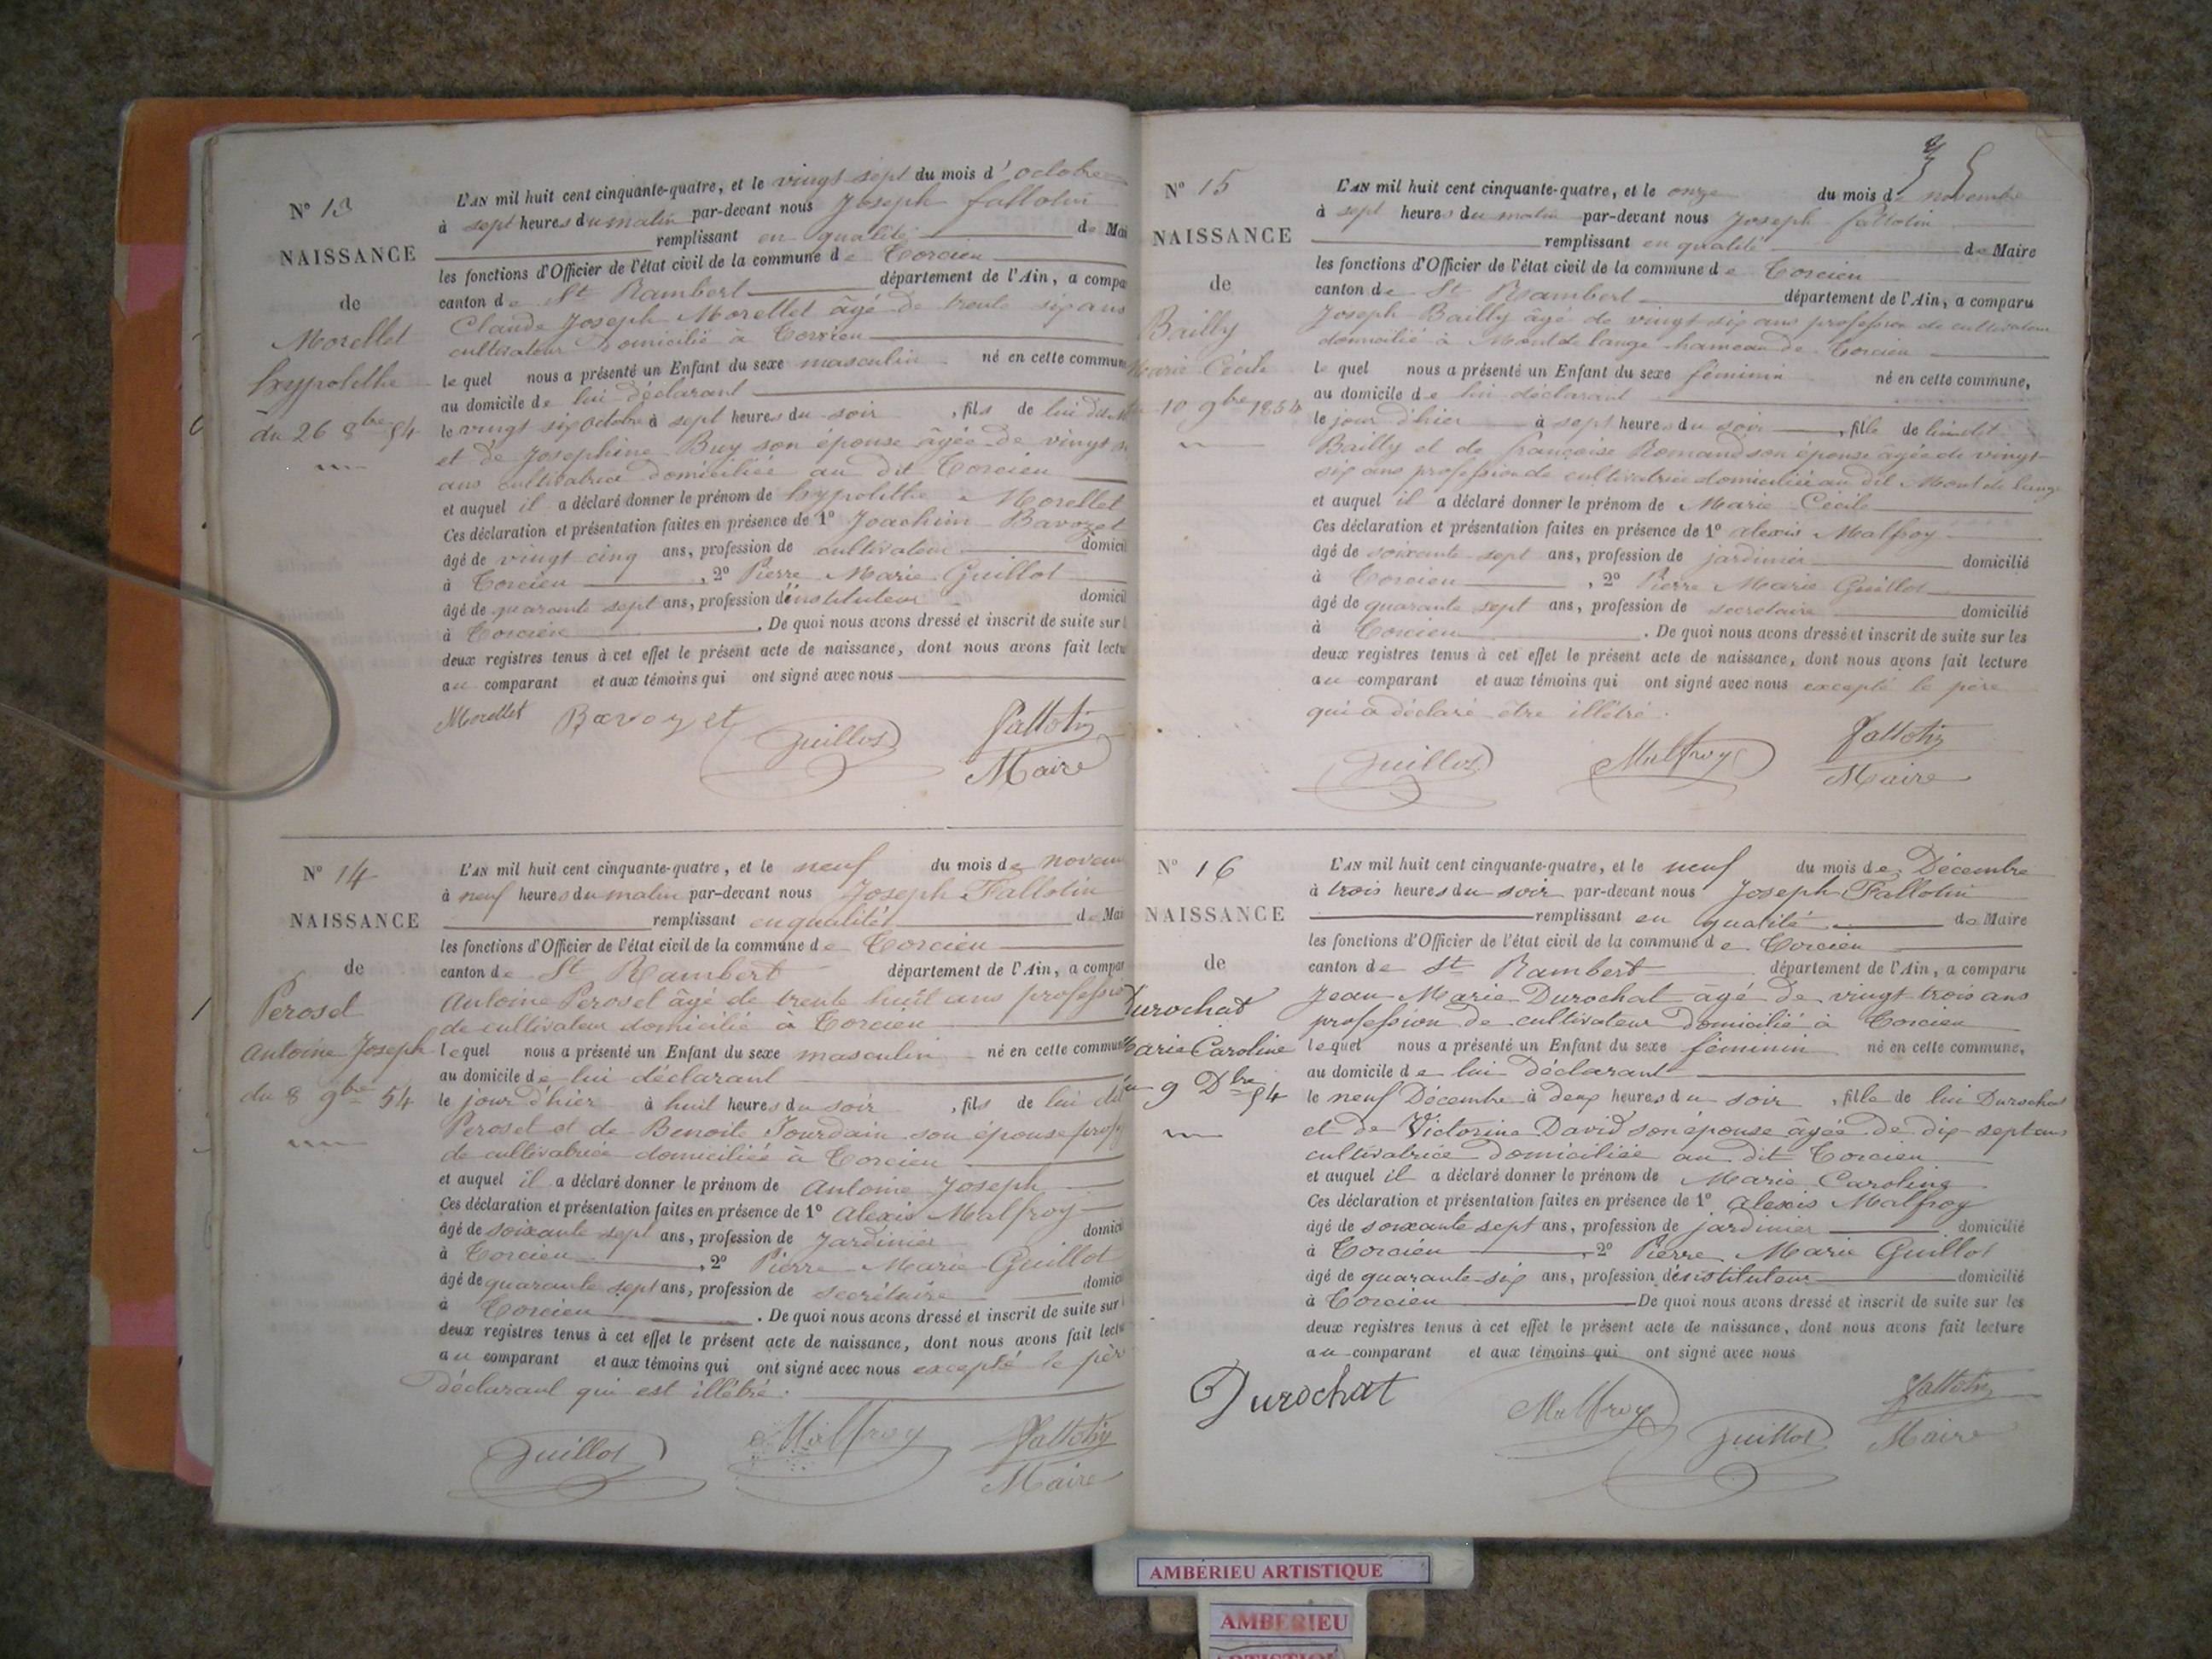 N° 13
NAISSANCE
de
Morellet
hypolithe
du 26 8bre 54
L'AN mil huit cent cinquante-quatre, et le vingt sept du mois d'octobre
à sept heures du matin par-devant nous Joseph fallotin
remplissant en qualité de Mai
les fonctions d'Officier de l'état civil de la commune de Torcieu
canton de St Rambert département de l'Ain, a compa
Claude Joseph Morellet âgé de trente six ans
cultivateur domicilié à Torcieu
lequel nous a présenté un Enfant du sexe masculin né en cette commune
au domicile de lui déclarant
le vingt six octobre à sept heures du soir, fils de lui dit
et de Josephine Buy son épouse âgée de vingt
ans cultivatrice domiciliée au dit Torcieu
et auquel il a déclaré donner le prénom de hypolithe Morellet
Ces déclaration et présentation faites en présence de 1° Joachim Bavozet
âgé de vingt cinq ans, profession de cultivateur domicil
à Torcieu, 2° Pierre Marie Guillot
âgé de quarante sept ans, profession d'instituteur domicil
à Torcieu. De quoi nous avons dressé et inscrit de suite sur l
deux registres tenus à cet effet le présent acte de naissance, dont nous avons fait lectu
au comparant et aux témoins qui ont signé avec nous
Morellet Bavozet Guillot fallotin
Maire
N° 14
NAISSANCE
de
Peroset
Antoine Joseph
du 8 9bre 54
L'AN mil huit cent cinquante-quatre, et le neuf du mois de novem
à neuf heures du matin par-devant nous Joseph Fallotin
remplissant en qualité de Mai
les fonctions d'Officier de l'état civil de la commune de Torcieu
canton de St Rambert département de l'Ain, a compar
Antoine Peroset âgé de trente huit ans professio
de cultivateur domicilié à Torcieu
lequel nous a présenté un Enfant du sexe masculin né en cette commune
au domicile de lui déclarant
le jour d'hier à huit heures du soir, fils de lui dit
Peroset et de Benoite Jourdain son épouse prof
de cultivatrice domiciliée à Torcieu
et auquel il a déclaré donner le prénom de Antoine Joseph
Ces déclaration et présentation faites en présence de 1° Alexis Malfroy
âgé de soixante sept ans, profession de Jardinier domici
à Torcieu, 2° Pierre Marie Guillot
âgé de quarante sept ans, profession de secrétaire domici
à Torcieu. De quoi nous avons dressé et inscrit de suite sur l
deux registres tenus à cet effet le présent acte de naissance, dont nous avons fait lectu
au comparant et aux témoins qui ont signé avec nous excepté le pèr
déclarant qui est illétré.
Guillot Malfroy fallotin
Maire
N° 15
NAISSANCE
de
Bailly
Marie Cécile
10 9bre 1854
L'AN mil huit cent cinquante-quatre, et le onze du mois de novembre
à sept heures du matin par-devant nous Joseph fallotin
remplissant en qualité de Maire
les fonctions d'Officier de l'état civil de la commune de Torcieu
canton de St Rambert département de l'Ain, a comparu
Joseph Bailly âgé de vingt six ans profession de cultivateur
domicilié à Mont de lange hameau de Torcieu
lequel nous a présenté un Enfant du sexe féminin né en cette commune,
au domicile de lui déclarant
le jour d'hier à sept heures du soir, fille de lui dit
Bailly et de françoise Romand son épouse âgée de vingt
six ans profession de cultivatrice domiciliée au dit Mont de lange
et auquel il a déclaré donner le prénom de Marie Cécile
Ces déclaration et présentation faites en présence de 1° alexis Malfroy
âgé de soixante sept ans, profession de jardinier domicilié
à Torcieu, 2° Pierre Marie Guillot
âgé de quarante sept ans, profession de secretaire domicilié
à Torcieu. De quoi nous avons dressé et inscrit de suite sur les
deux registres tenus à cet effet le présent acte de naissance, dont nous avons fait lecture
au comparant et aux témoins qui ont signé avec nous excepté le père
qui a déclaré être illétré.
Guillot Malfroy fallotin
Maire
N° 16
NAISSANCE
de
Durochat
Marie Caroline
9 Dbre 54
L'AN mil huit cent cinquante-quatre, et le neuf du mois de Décembre
à trois heures du soir par-devant nous Joseph Fallotin
remplissant en qualité de Maire
les fonctions d'Officier de l'état civil de la commune de Torcieu
canton de St Rambert département de l'Ain, a comparu
Jean Marie Durochat âgé de vingt trois ans
profession de cultivateur domicilié à Torcieu
lequel nous a présenté un Enfant du sexe féminin né en cette commune,
au domicile de lui déclarant
le neuf Décembre à deux heures du soir, fille de lui Durochat
et de Victorine David son épouse âgée de dix sept ans
cultivatrice domiciliée au dit Torcieu
et auquel il a déclaré donner le prénom de Marie Caroline
Ces déclaration et présentation faites en présence de 1° alexis Malfroy
âgé de soixante sept ans, profession de jardinier domicilié
à Torcieu, 2° Pierre Marie Guillot
âgé de quarante six ans, profession d'instituteur domicilié
à Torcieu De quoi nous avons dressé et inscrit de suite sur les
deux registres tenus à cet effet le présent acte de naissance, dont nous avons fait lecture
au comparant et aux témoins qui ont signé avec nous
Durochat Malfroy Guillot fallotin
Maire
AMBÉRIEU ARTISTIQUE
AMBERIEU
ARTISTIQUE